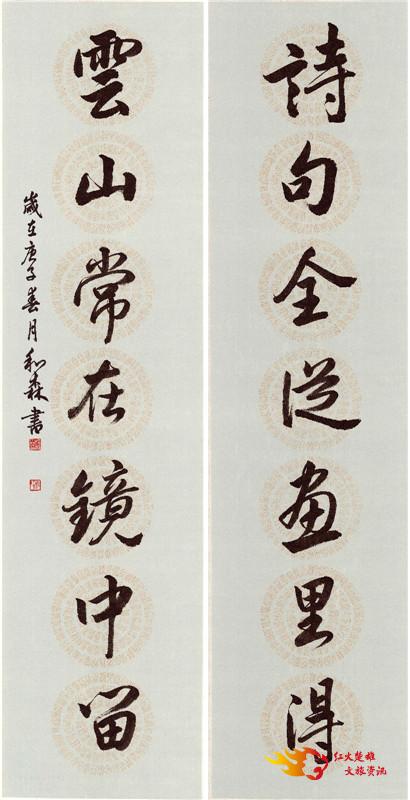 詩句全從畫里得
雲山常在鏡中留
歲在庚子春月和森書
红火楚雄
文旅资讯